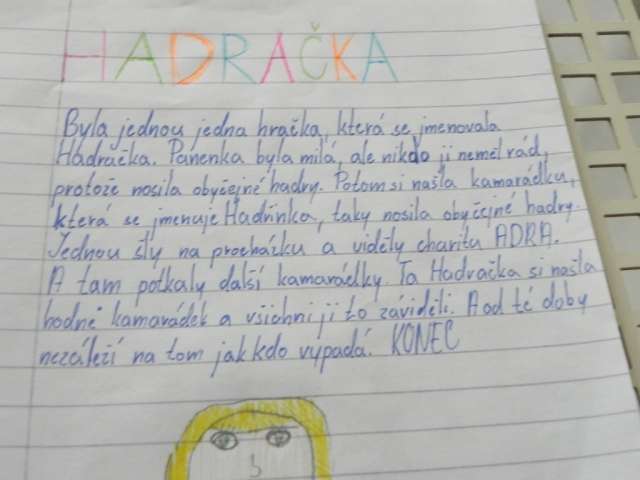 HADRAČKA
Byla jednou jedna hračka, která se jmenovala
Hadračka. Panenka byla milá, ale nikdo ji neměl rád,
protože nosila obyčejné hadry. Potom si našla kamarádku,
která se jmenuje Hadřinka, taky nosila obyčejné hadry.
Jednou šly na procházku a viděly charitu ADRA.
A tam potkaly další kamarádky. Ta Hadračka si našla
hodně kamarádek a všichni jí to záviděli. A od té doby
nezáleží na tom jak kdo vypadá. KONEC